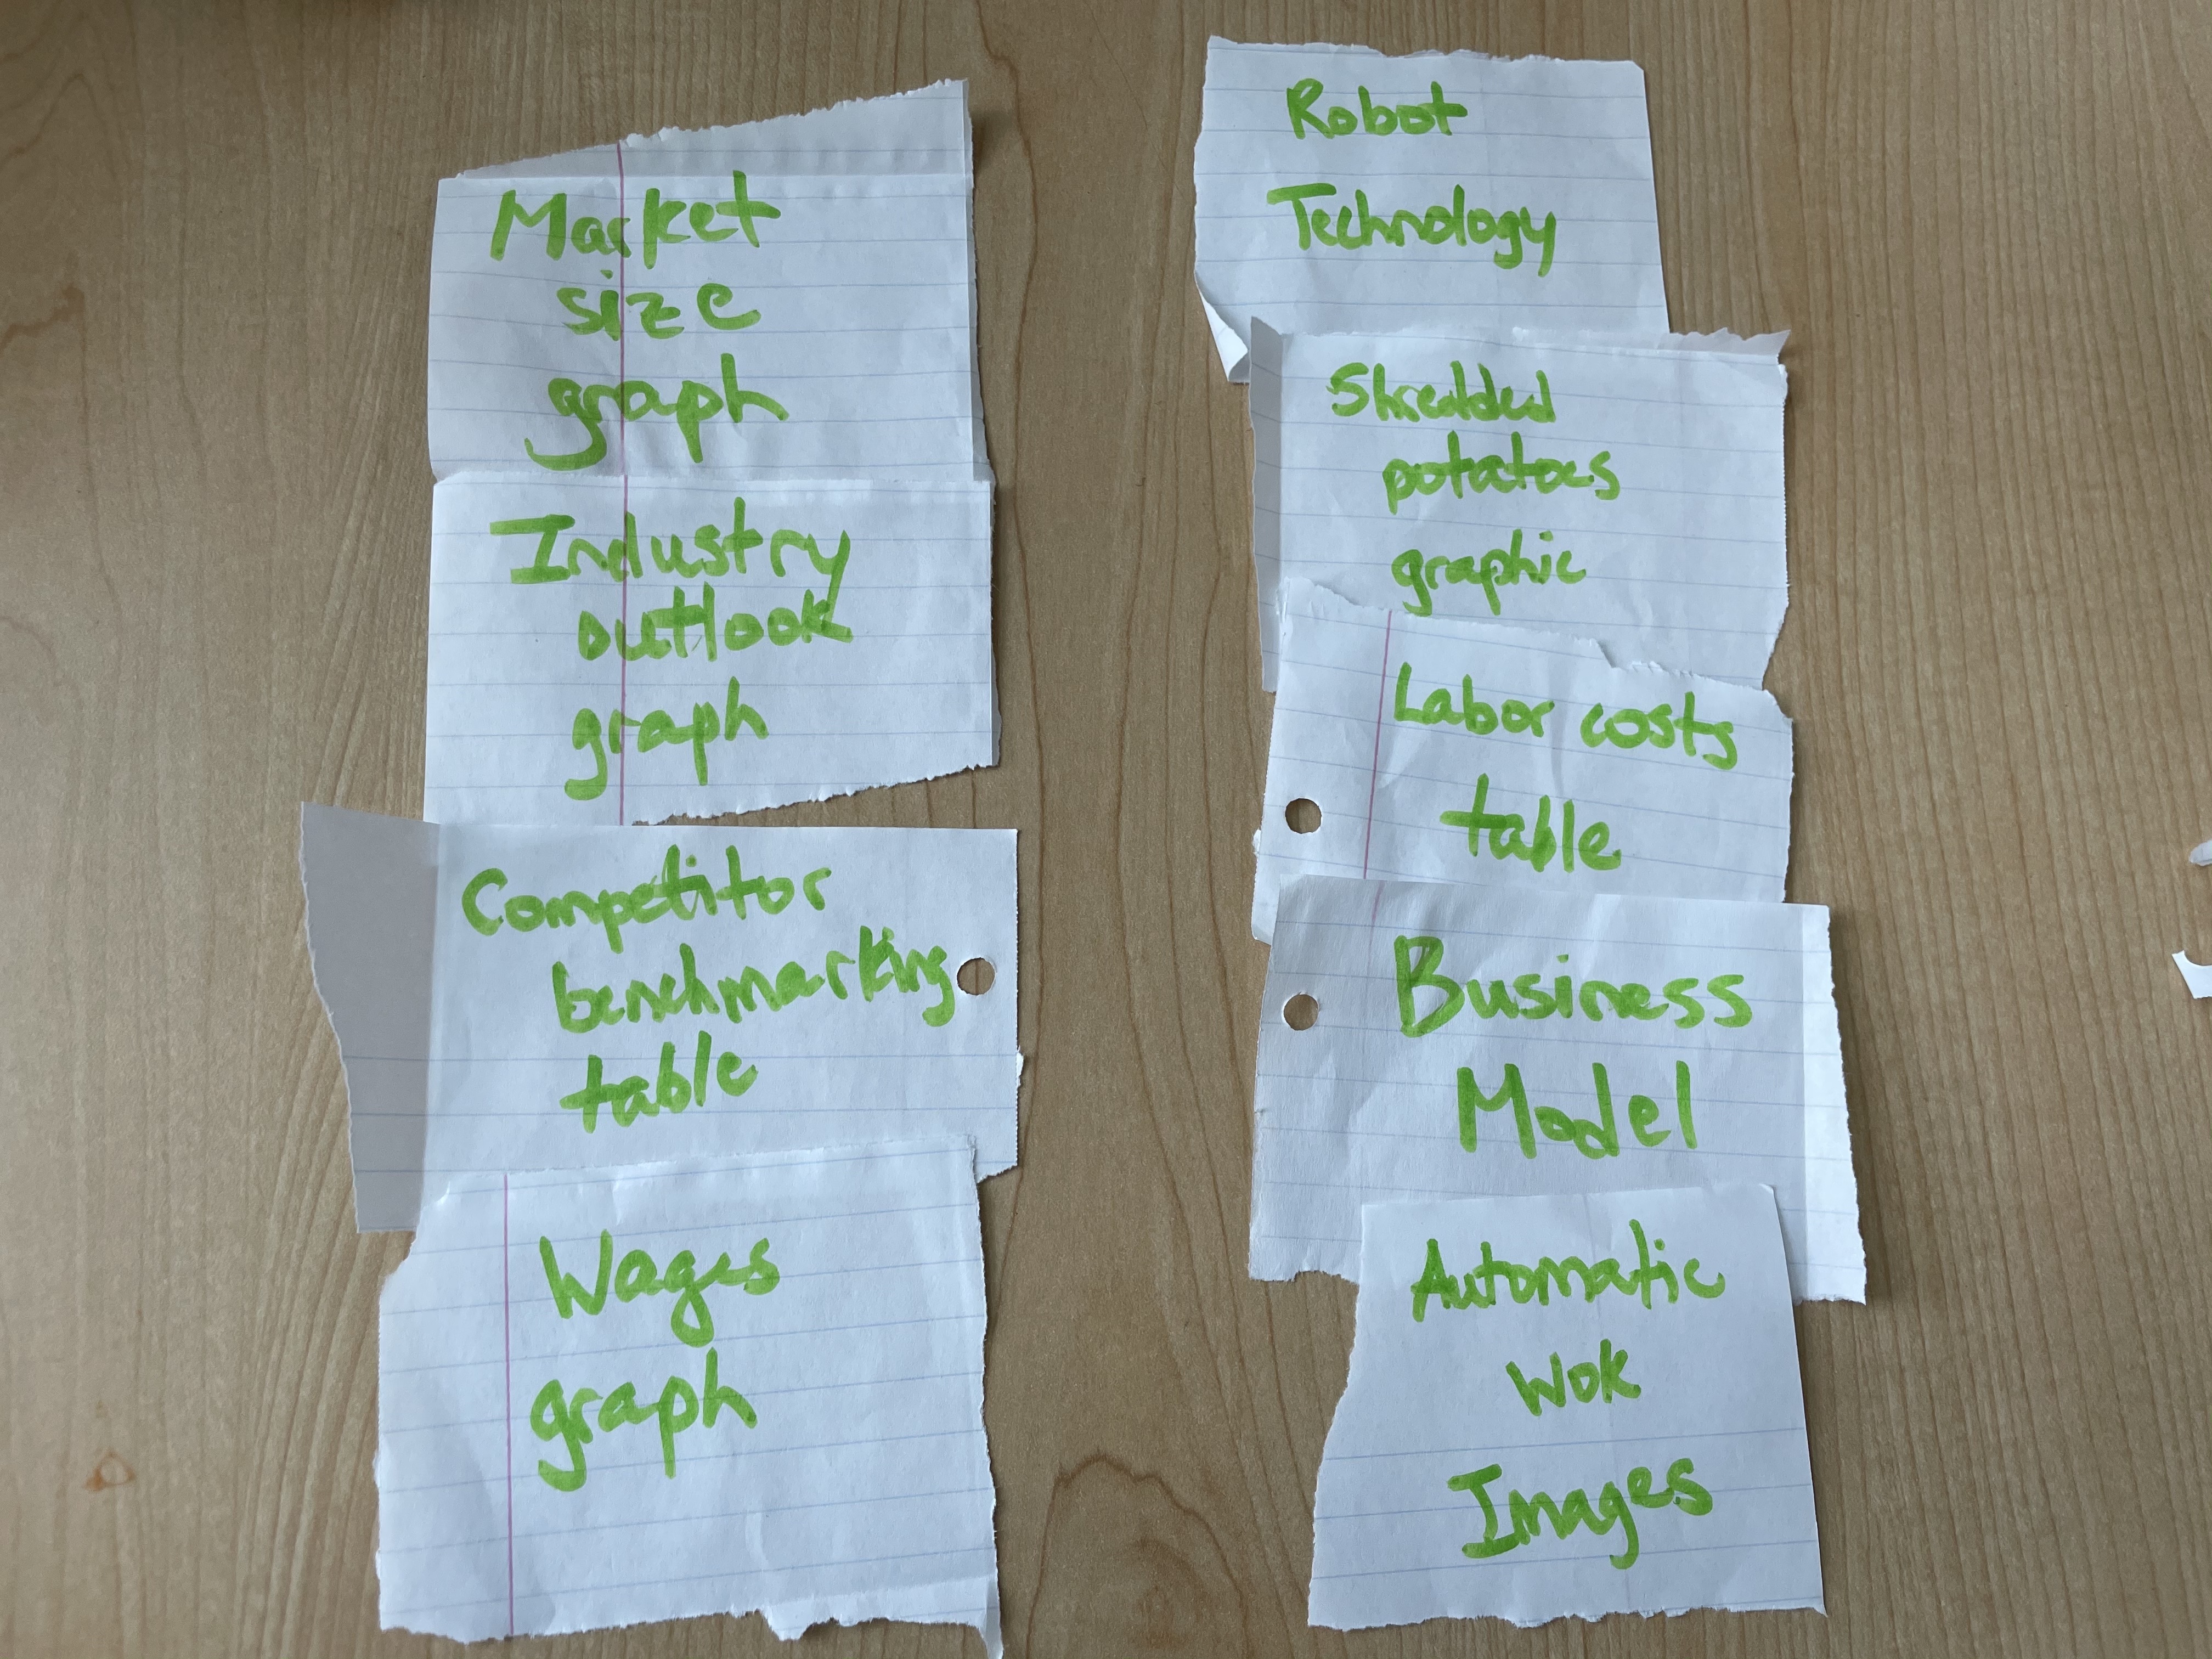 Market
size
graph
Industry
outlook
graph
Competitor
benchmarking
table
Wages
graph
Robot
Technology
Shredded
potatoes
graphic
Labor costs
table
Business
Model
Automatic
Wok
Images